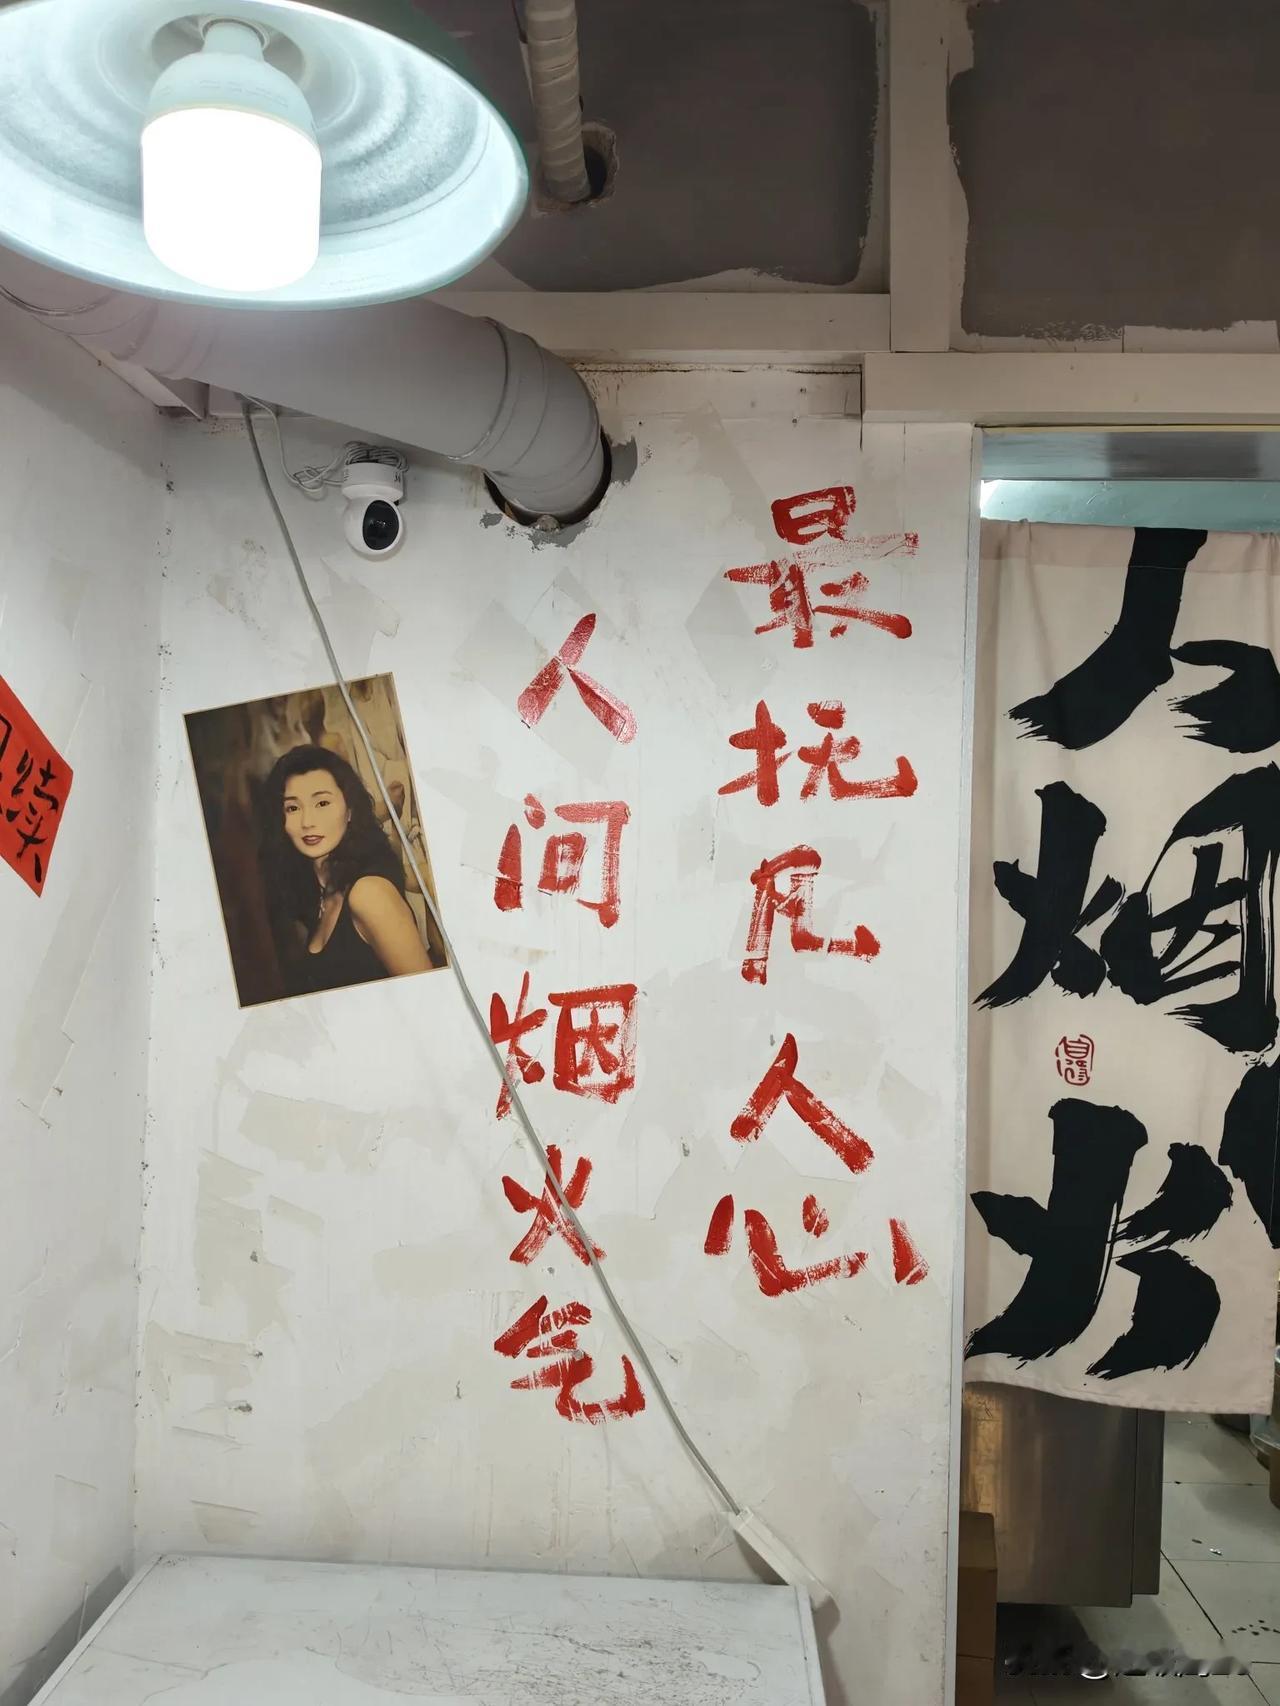 人间烟火气
最抚凡人心
人烟火
续